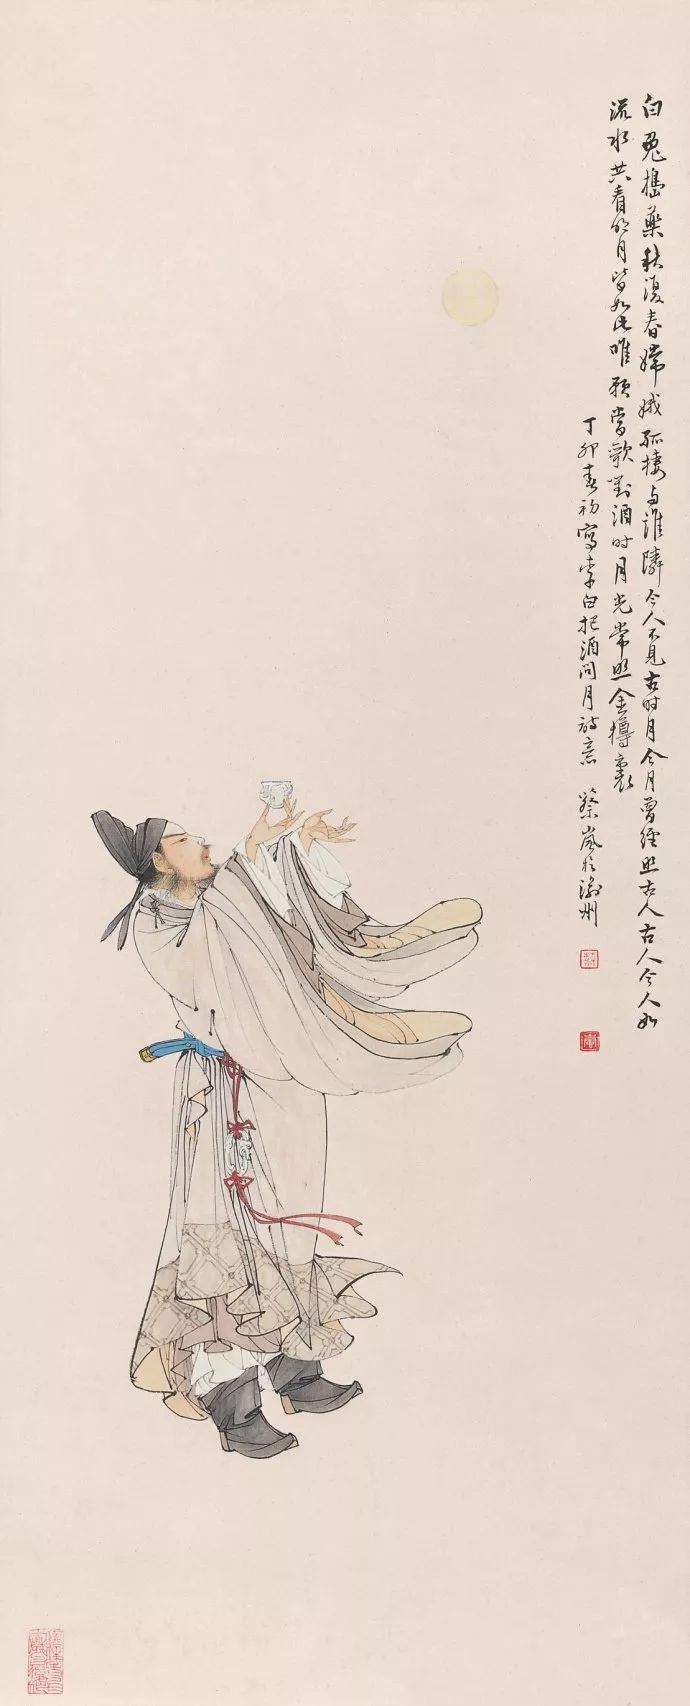 白兔搗藥秋復春嫦娥孤棲与誰隣今人不見古时月今月曾經照古人古人今人如
流水共看明月皆如此唯願當歌對酒时月光常照金樽裏
丁卯春初寫李白把酒問月詩意 蔡嵐於渝州